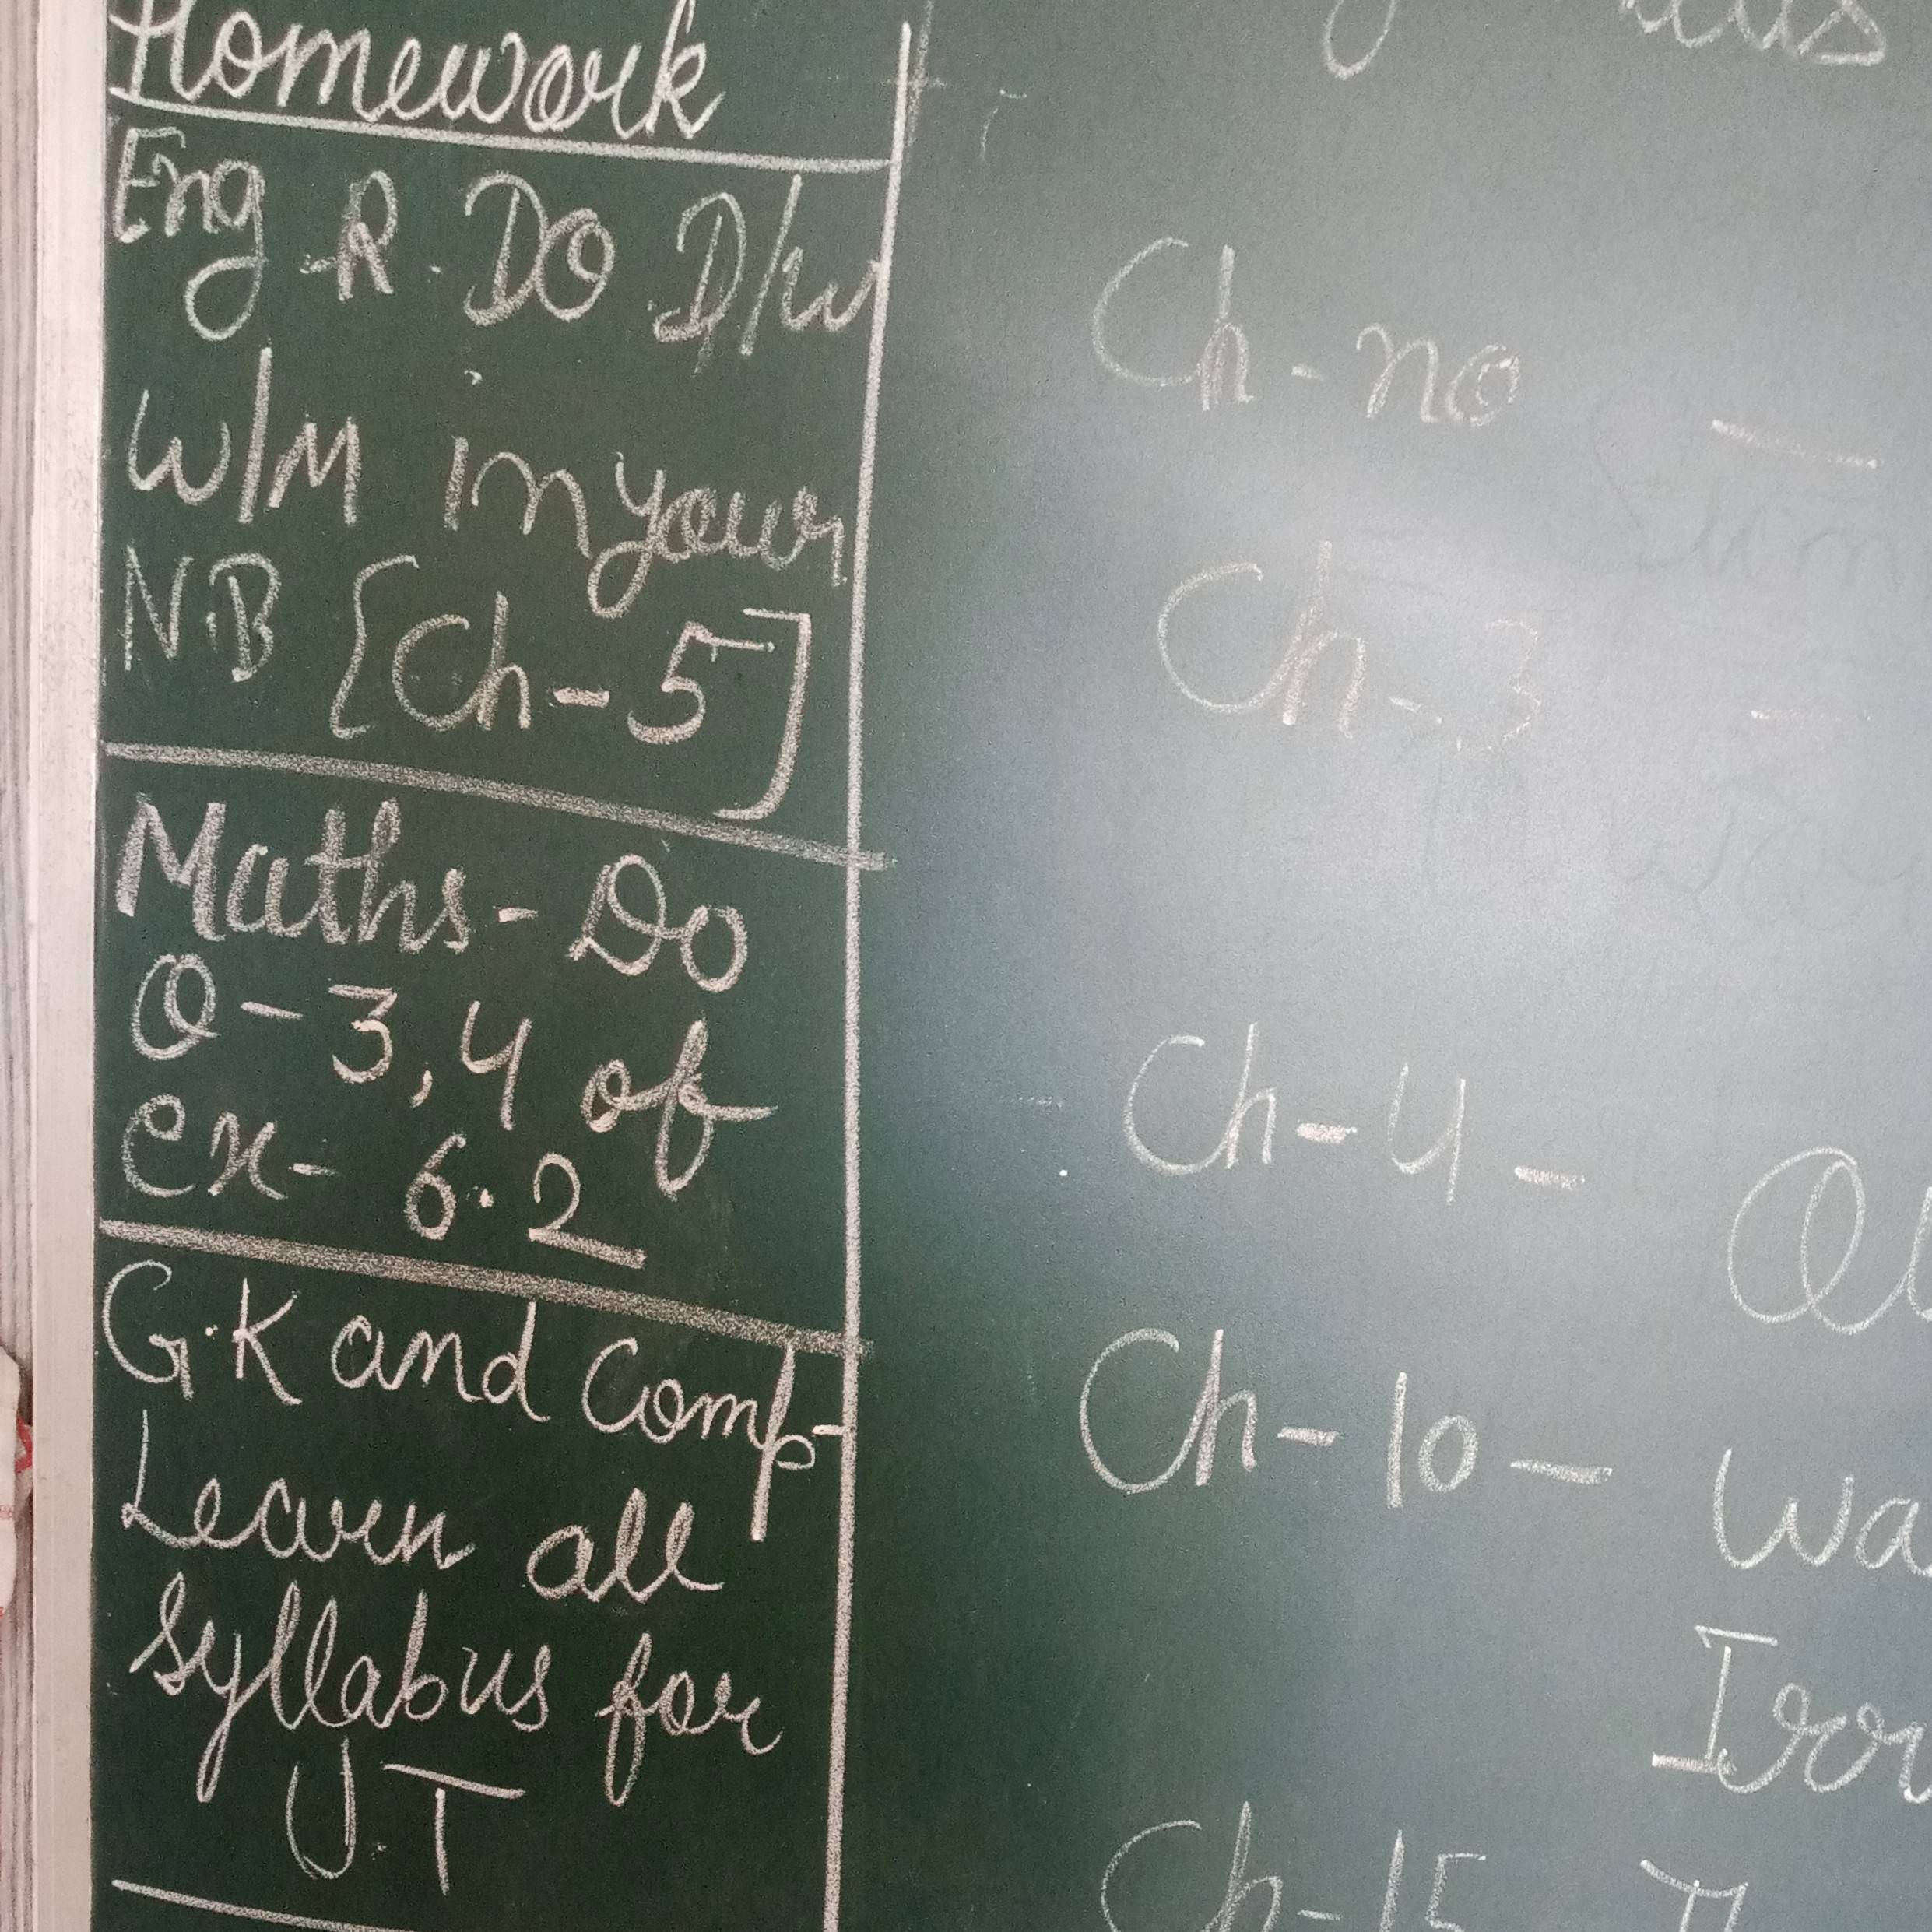 Homework
Eng-R. DO D/w
W/M in your
N.B {Ch-5]
Maths-Do
Q-3,4 of
ex-6.2
G.K and Comp-
Learn all
syllabus for
U.T
Ch-no -
Ch-3 -
Ch-4 -
Ch-10 - Wa
Ch-15